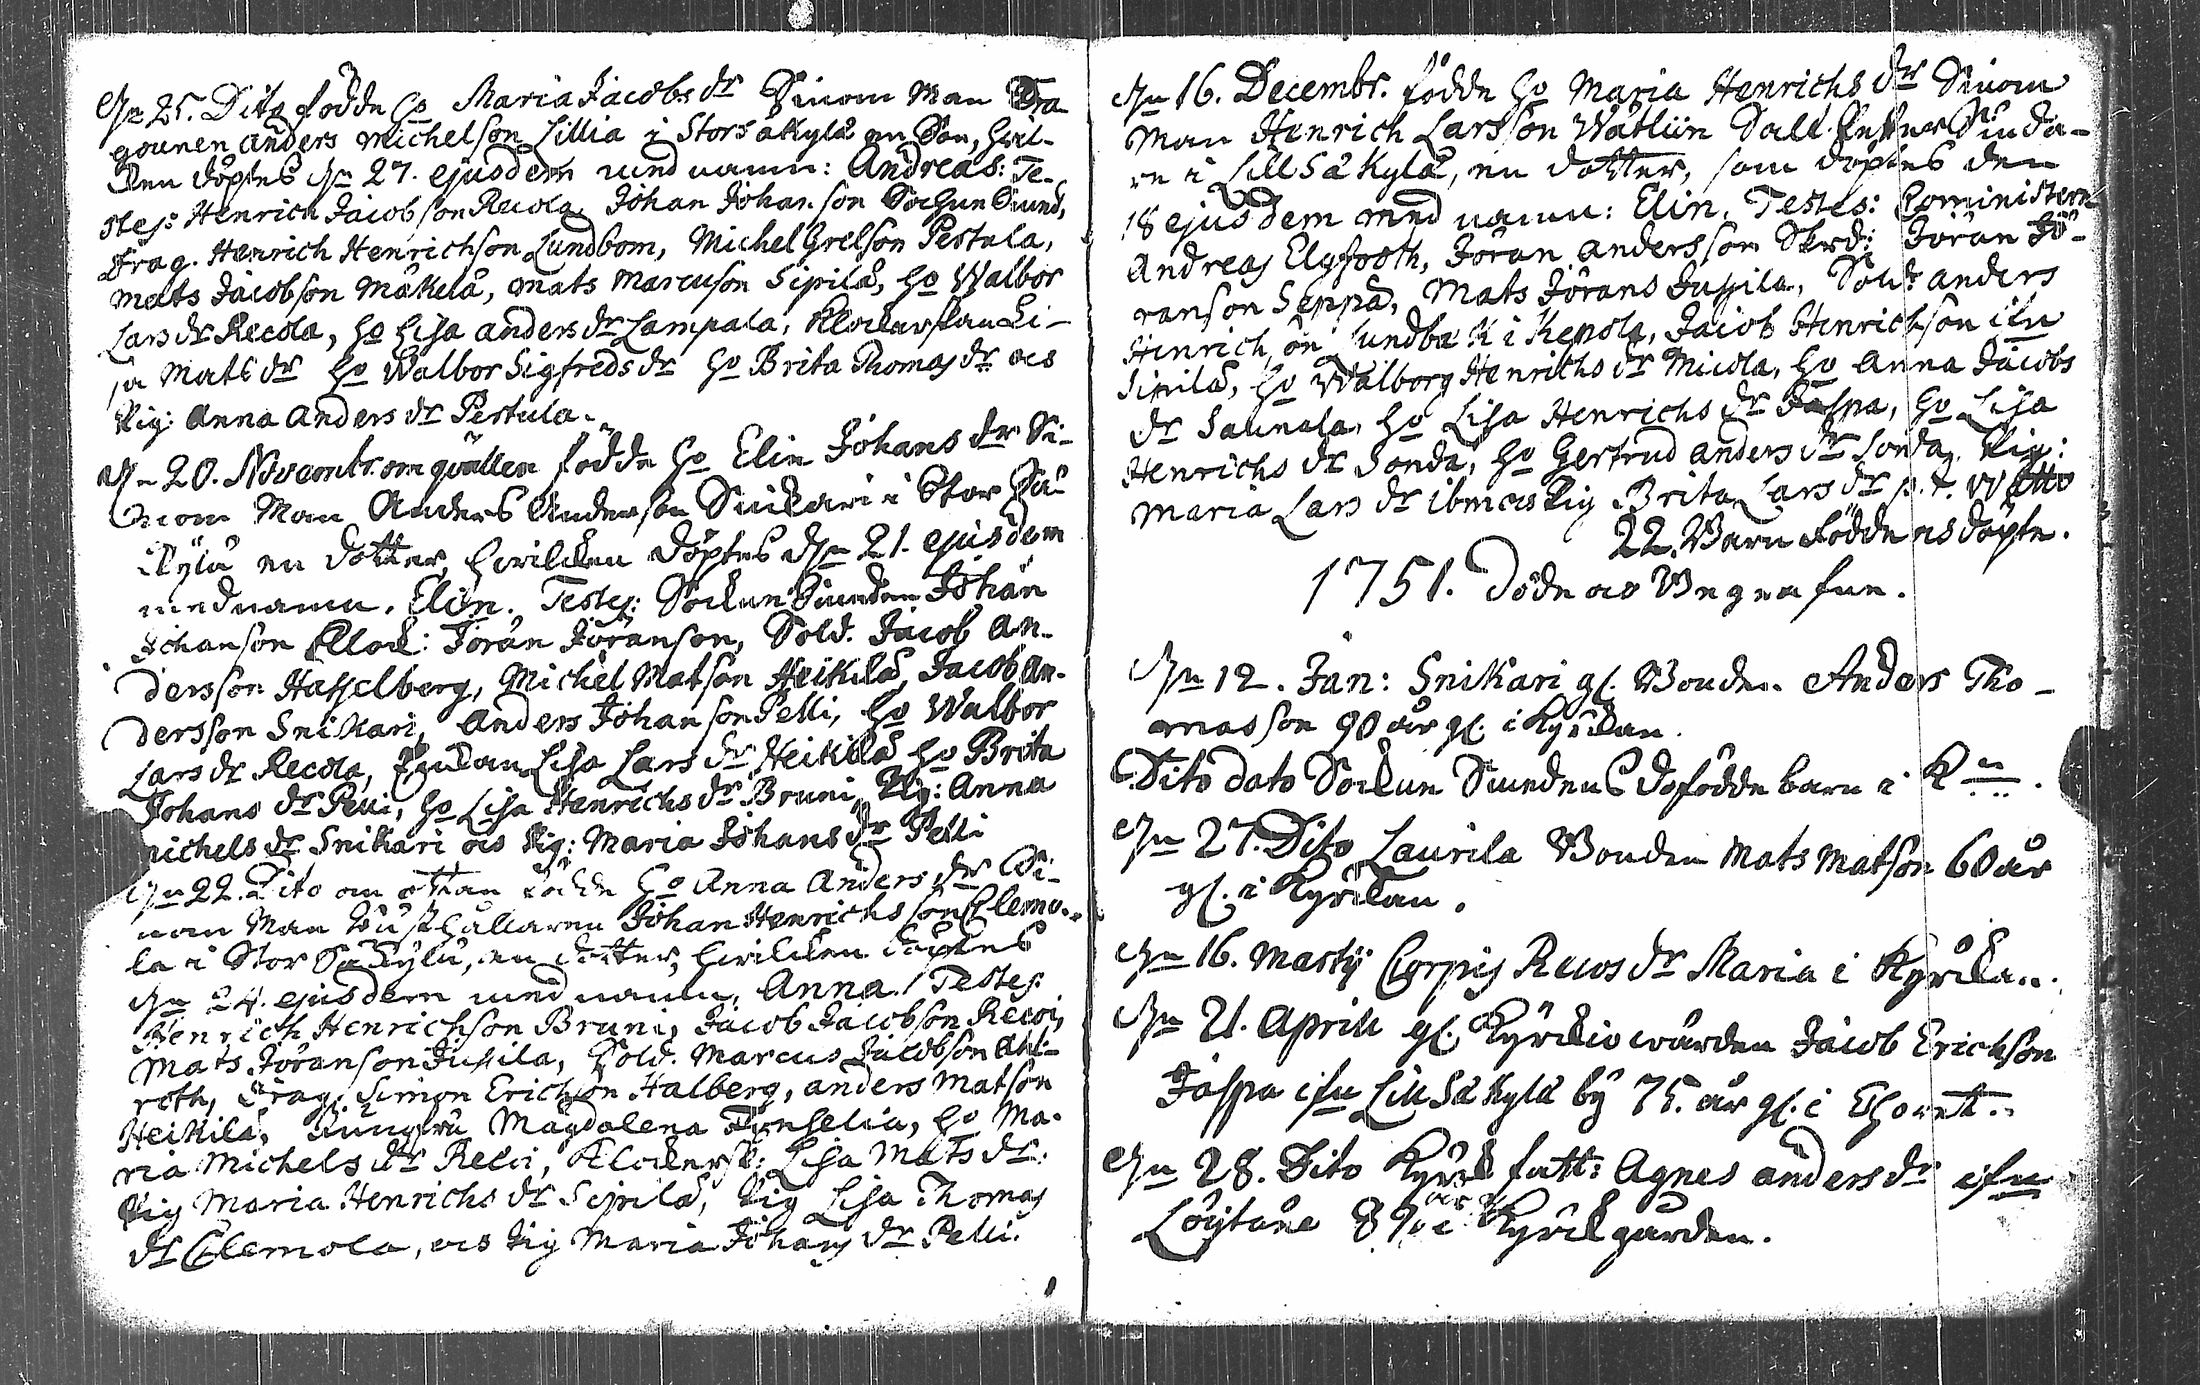 Den 25. Dito födde ho Maria Jacobs dr Sinom Man Dra
gounen Anders Michelson Lillia i Storsäkylä en Son, hvil-
cken döptes den 27. ejusdem med namn: Andreas: Te-
stes: Henrich Jacobson Recola, Johan Johanson Sochne Smed,
Drag. Henrich Henrichson Lundbom, Michel Grelson Pestula,
Mats Jacobson Mäkelä, Mats Marcuson Sipilä, ho Walbor
Lars dr Recola, ho Lisa Anders dr Lampala, Klockarskan Li-
sa Mats dr ho Walbor Sigfreds dr ho Brita Thomas dr ocs
Pig: Anna Anders dr Pestula.
Den 20. Novembr. om qvällen födde ho Elin Johans dr Si-
nom Man Anders Anderson Snickari i Stor Sä-
kylä en dotter, hvilcken döptes den 21. ejusdem
med namn. Elin. Testes: Sockne Smeden Johan
Johanson Klock: Jöran Jöranson, Sold. Jacob An-
dersson Hasselberg, Michel Matson Heikilä, Jacob An-
dersson Snikari, Anders Johanson Pelli, ho Walbor
Lars dr Recola, Enckan Lisa Lars dr Heikilä ho Brita
Johans dr Pelli, ho Lisa Henrichs dr Bruni, Pig: Anna
Michels dr Snikari ocs Pig: Maria Johans dr Pelli
Den 22. Dito om ottan födde ho Anna Anders dr Si-
nom Man Rusthållaren Johan Henrichsson Clemo-
la i Stor Säkylä, en dotter, hvilcken döptes
den 24. ejusdem med namn, Anna. Testes:
Henrich Henrichson Bruni, Jacob Jacobson Recoi,
Mats Jöranson Jussila, Sold. Marcus Jacobson Ahl-
roth, Drag. Simon Erichson Halberg, Anders Matson
Heikilä, Jungfru Magdalena, ho Ma-
ria Michels dr Recoi, Klockarsk: Lisa Mats dr:
Pig Maria Henrichs dr Sipilä, Pig Lisa Thomas
dr Clemola, ocs Pig Maria Johans dr Pelli.
Den 16. Decembr. födde ho Maria Henrichs dr Sinom
Man Henrich Larsson Wätliin Sall.
re i Lill Säkylä, en dotter, som döptes den
18 ejusdem med namn: Elin, Testes: Comministern
Andreas Elgfooth, Jöran Andersson Skrd: Jöran Jö-
ranson Seppä, Mats Jörans Jussila, Sold: Anders
Henrichson Lundbäk i Kepola, Jacob Henrichson ifrn
Sipilä, ho Walborg Henrichs dr Micola, ho Anna Jacobs
dr Saunala, ho Lisa Henrichs dr Jaspa, ho Lisa
Henrichs dr Sonda, ho Gertrud Anders dr Sonda, Pig:
Maria Lars dr ibm ocs Pig Brita Lars dr p. t.
22. Barn födde ocs döpte.
1751. Döde ocs Begrafne.
Den 12. Jan: Snikari gl. Bonden Anders Tho-
masson 90 år gl. i Kyrckan.
Dito dato Sockne Smedens dofödde barn i K=.
Den 27. Dito Laurila Bonden Mats Matson 60 år
gl. i Kyrckan.
Den 16. Martij Corpis Rews dr Maria i Kyrckan.
Den 21. April gl. Kyrckiowärden Jacob Erichson
Jaspa ifrn Lill Säkylä by 75. år gl. i Choret.
Den 28. Dito Kyrck fatt: Agnes Anders dr ifrn
Löytäne 89 år i Kyrckgården.